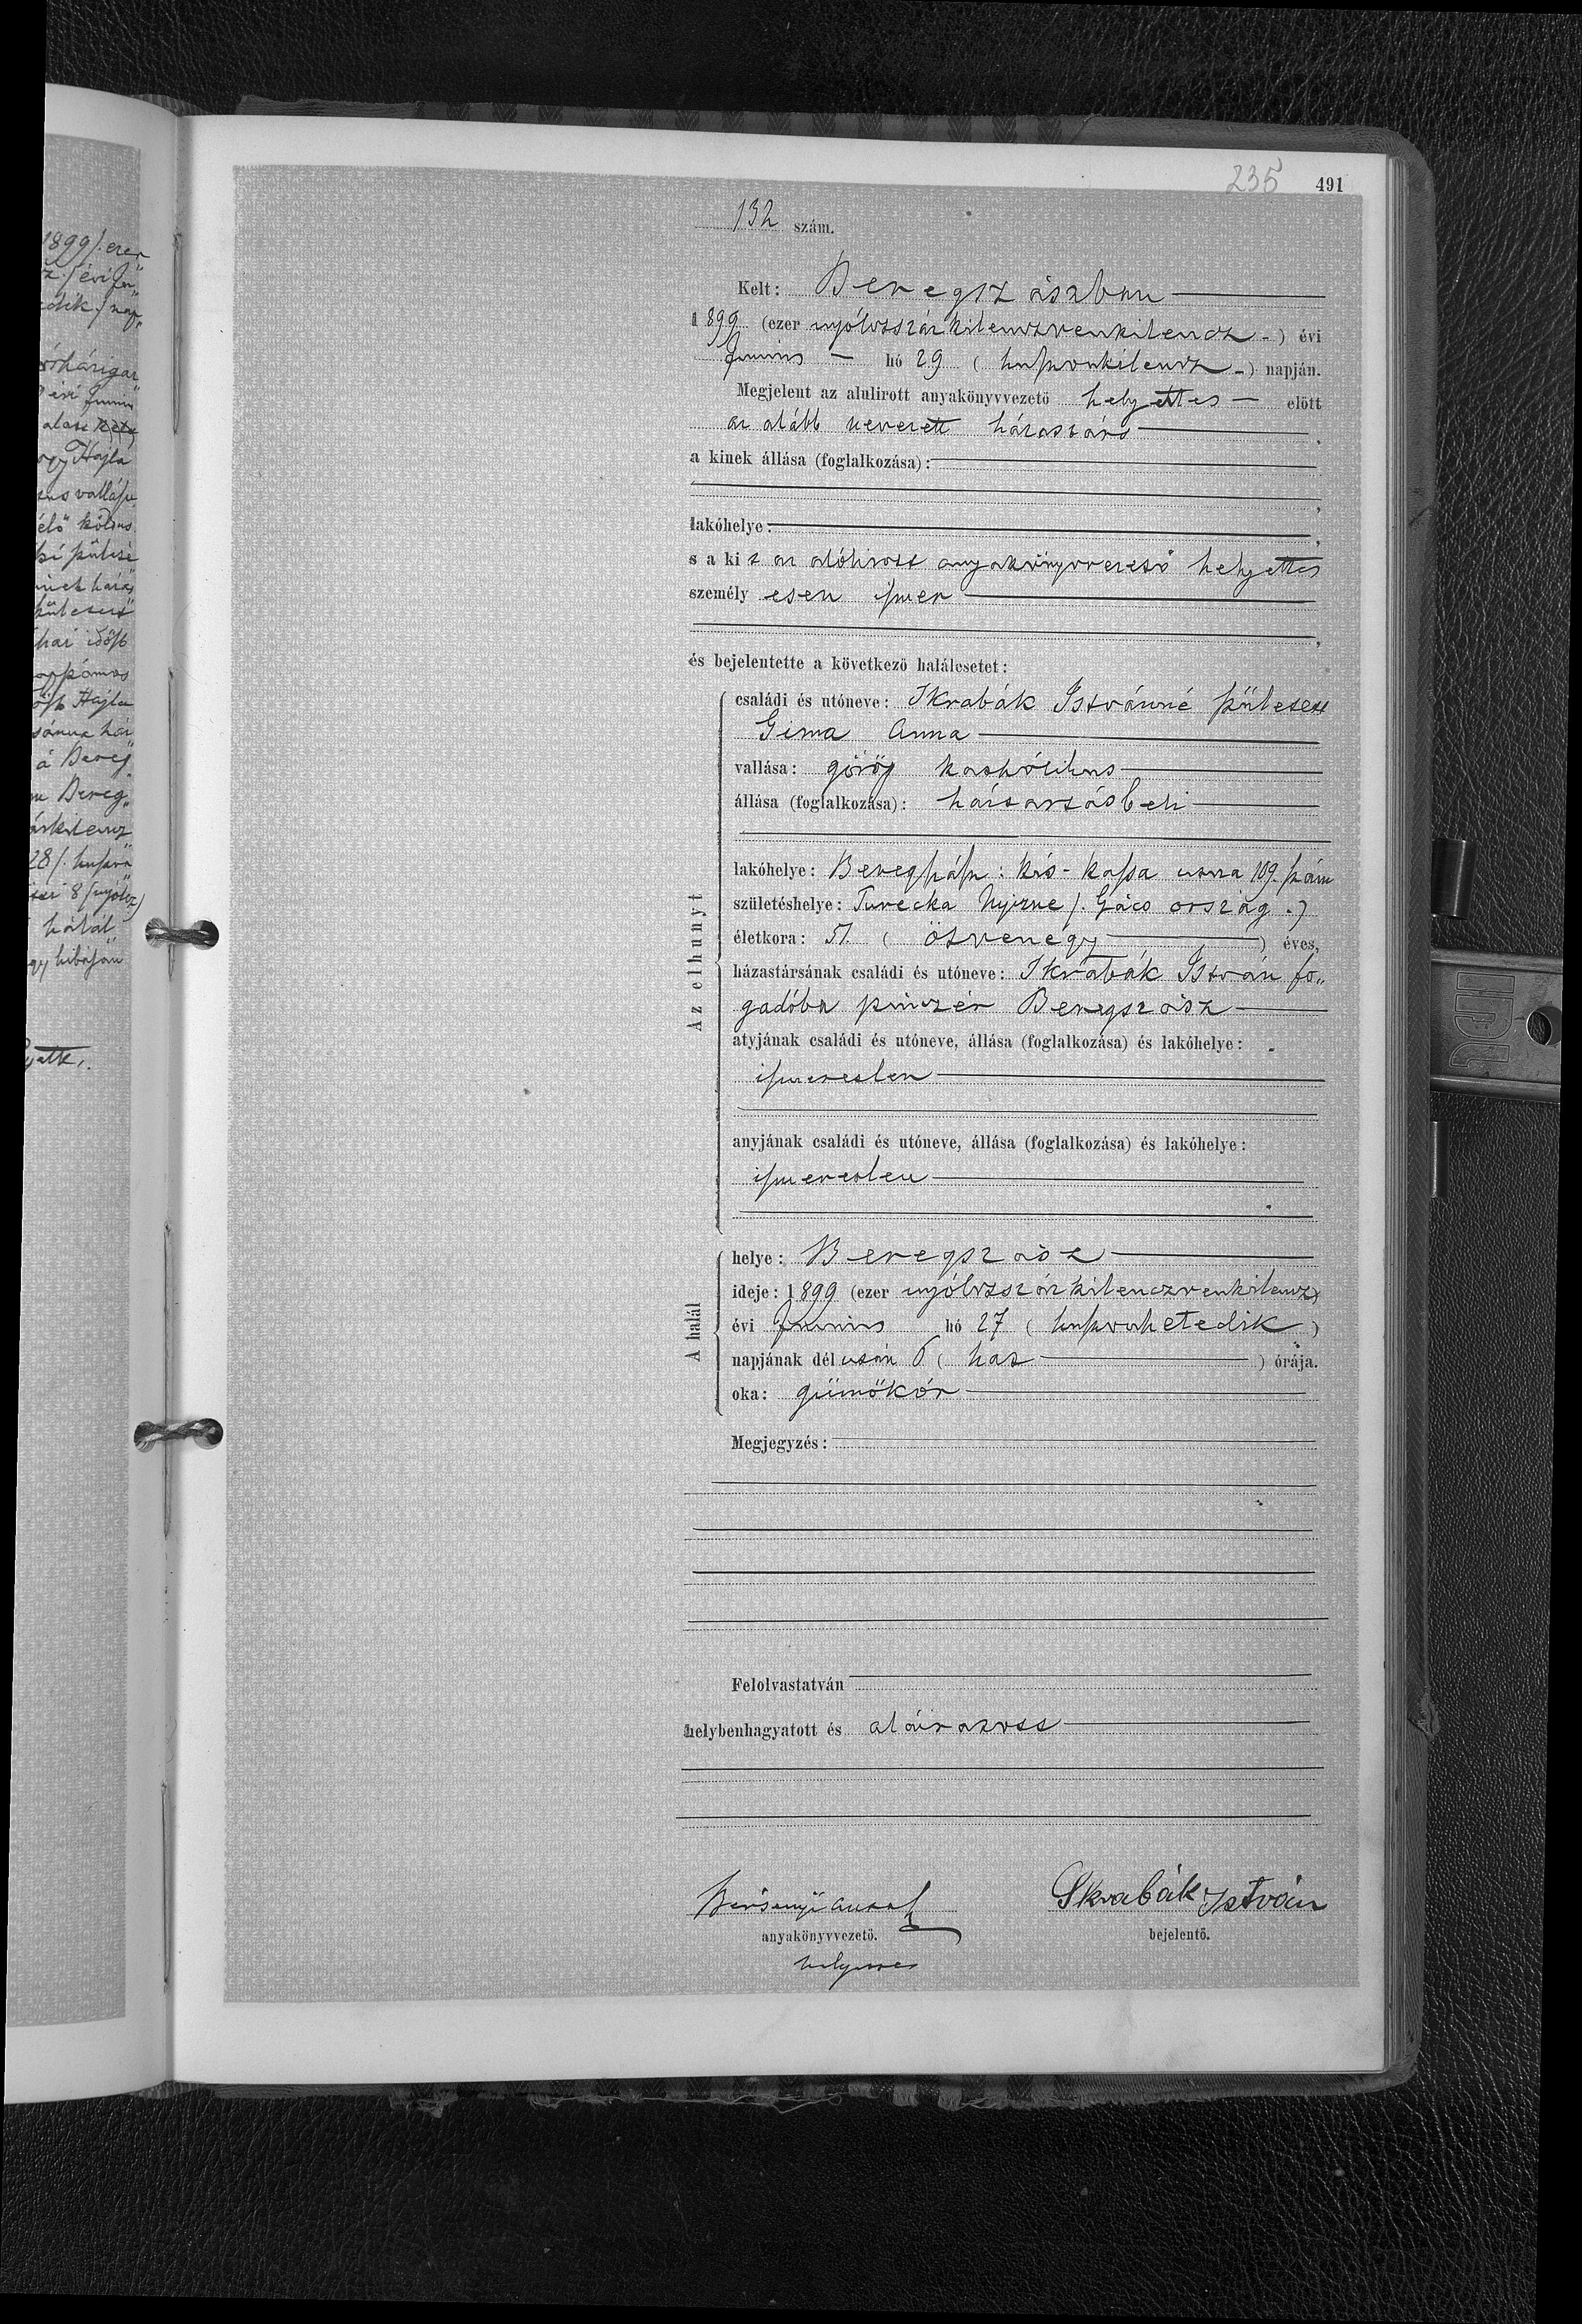 1899/. ezer
sz./ évi Ju„
edik/ nap„
évi Junius
Hajla
vallásu
élő" koldus
születésű
idős
Hajla
á Bereg
Bereg„
28/. huszon
8 (nyolcz)
halál
235 491
132 szám.
Kelt: Beregszászban
1899 (ezer nyólczszázkilenczvenkilencz) évi
Junius hó 29 (huszonkilencz) napján.
Megjelent az alulirott anyakönyvvezető helyettes előtt
az alább nevezett házastárs
a kinek állása (foglalkozása):
lakóhelye:
s a kit az alólirott anyakönyvvezető helyettes
személy esen ismer
és bejelentette a következő halálesetet:
Az elhunyt
családi és utóneve: Skrabák Istvánné született
Gima Anna
vallása: görög katholikus
állása (foglalkozása): háztartásbeli
lakóhelye: Beregszász: kis-kassa utcza 109. szám
születéshelye: Turecka Nyizne /. Gács ország ./
életkora: 51. (ötvenegy) éves,
házastársának családi és utóneve: Skrabák István fo„
gadóbn pinczér Beregszász
atyjának családi és utóneve, állása (foglalkozása) és lakóhelye:
ismeretlen
anyjának családi és utóneve, állása (foglalkozása) és lakóhelye:
ismeretlen
A halál
helye: Beregszász
ideje: 1899 (ezer nyólczszázkilenczvenkilencz)
évi Junius hó 27 (huszonhetedik)
napjának dél után 6 (hat) órája.
oka: gümőkór
Megjegyzés:
Felolvastatván
helybenhagyatott és aláiratott
anyakönyvvezető.
helyettes
Skrabák István
bejelentő.